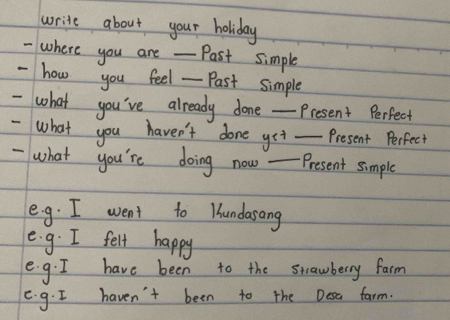 write about your holiday
- where you are — Past simple
- how you feel — Past simple
- what you've already done — Present Perfect
- what you haven't done yet — Present Perfect
- what you're doing now — Present simple
e.g. I went to Kundasang
e.g. I felt happy
e.g. I have been to the strawberry farm
e.g. I haven't been to the Desa farm.